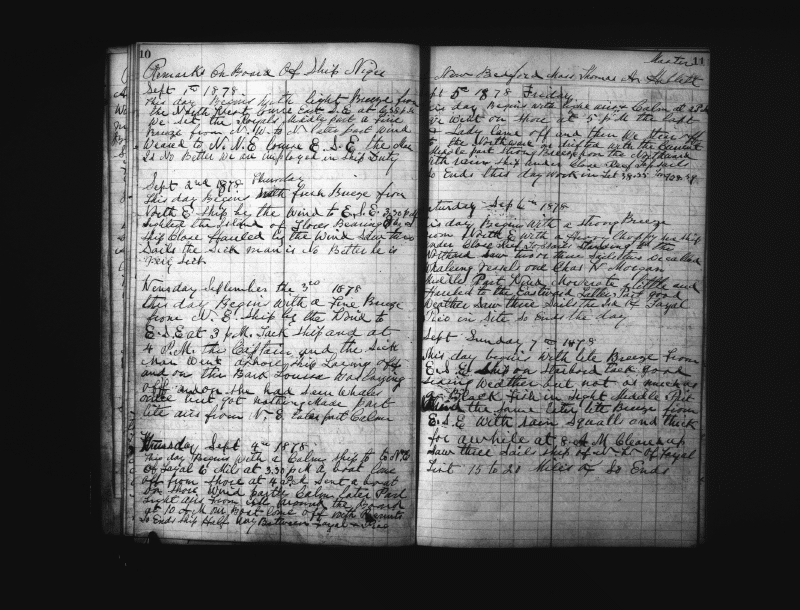 10
Remarks On Board Of Ship Niger
Sept 1st 1878
This day Begins with light Breeze from
the North West Course E.S.E. at 6.30 P.M.
We set the Royals Middle part a fine
Breeze from N.W. to N. Later part Wind
Weard to N.N.E. Course E.S.E. the
Is No Better We are Employed in Ship Duty
Sept 2nd 1878 Thursday
This day Begins with fresh Breeze from
North E. Ship by the Wind to E.S.E. 3.30 P.M.
Sighted the Island of Flores Bearing
Ship Close Hauled by the Wind Saw three
Sails the Sick man is No Better he is
Very Sick
Wensday September the 3rd 1878
this day Begin with a Fine Breeze
from N.E. Ship by the Wind to
E.S.E at 3 P.M. Tack Ship and at
4 P.M. the Captain and the Sick
Man Went ashore Ship Laying off
and on the Bark Louisa Was laying
off and on She had Seen Whales
once but got nothing Middle Part
lite aires from N.E Later part Calm
Thursday Sept 4th 1878
This day Begins with a Calm Ship to
Of Fayal 6 Mil at 3.30 P.M A boat Come
off from Shore at 4 P.M. Sent a boat
on Shore Wind partly Calm Later Part
Light airs from all around the Board
at 10 A.M Our Boat Come off With Recruits
So Ends Ship Half Way Between Fayal & Pico
Master 11
New Bedford Mass Thomas A. Hallett
Sept 5th 1878 Friday
This day Begins with Fine aires & Calm at
We Went on Shore at 5 P.M the Capt
& Lady Came off and then We Steer off
to the Northward or drifted With the Current
Middle part Strong Breeze from the Northward
With rain Ship Under Close Reef Top Sail
So Ends this day Work in Lat 38.55 Lon 28.38
Saturday Sept 6th 1878
This day Begin With a Strong Breeze
from North With a Heavy Choppy Sea Ship
Under Close Reef Topsails Standing to the
Northard Saw two or three Sails this
Whaling Vessels one Chas W Morgan
Middle Part Wind Moderate little and
Hauled to the Eastward Latter Part good
Weather Saw three Sails the Is. of Fayal
Pico in Site So Ends the day
Sept Sunday 7th 1878
This day begins With lite Breeze From
E.S.E. Ship on Starbord Tack good
Seeing Weather but not as much as
a Black fish in Sight Middle Part
the Same later lite Breeze from
E.S.E With rain Squalls and thick
for awhile at 8 A.M Clean up
Saw three Sails Ship of Fayal
Dist 15 to 20 Miles Of So Ends